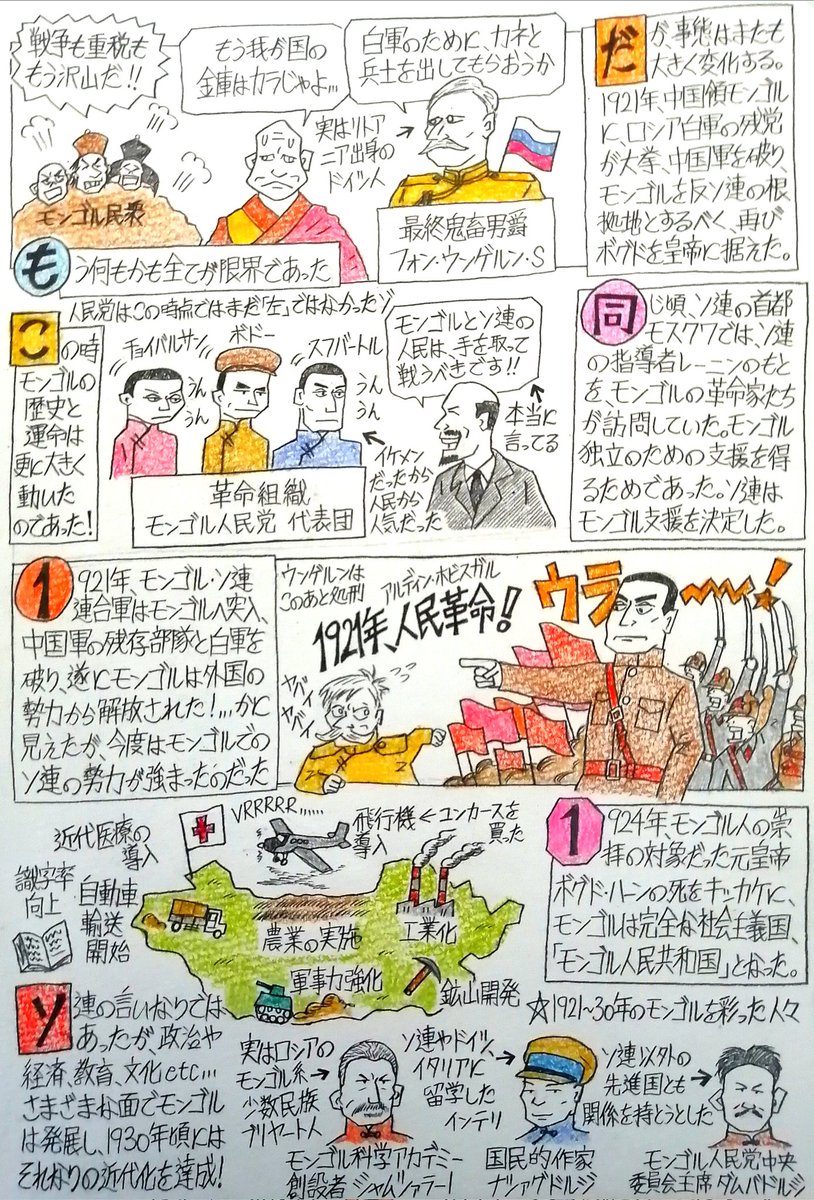 だが、事態はまたも
大きく変化する。
1921年、中国領モンゴル
に、ロシア白軍の残党
が大挙、中国軍を破り、
モンゴルを反ソ連の根
拠地とするべく、再び
ボグドを皇帝に据えた。
白軍のために、カネと
兵士を出してもらおうか
もう我が国の
金庫はカラじゃよ…
戦争も重税も
もう沢山だ!!
実はリトア
ニア出身の
ドイツ人
モンゴル民衆
最終鬼畜男爵
フォン・ウンゲルン・S
もう何もかも全てが限界であった
同じ頃、ソ連の首都
モスクワでは、ソ連
の指導者レーニンのもと
を、モンゴルの革命家たち
が訪問していた。モンゴル
独立のための支援を得
るためであった。ソ連は
モンゴル支援を決定した。
人民党はこの時点ではまだ「左」ではなかったゾ
モンゴルとソ連の
人民は、手を取って
戦うべきです!!
本当に
言ってる
スフバートル
ボドー
チョイバルサン
うん
うん
うん
うん
イケメン
だったから
人民から
人気だった
革命組織
モンゴル人民党 代表団
この時
モンゴルの
歴史と
運命は
更に大きく
動いた
のであった!
1921年、モンゴル・ソ連
連合軍はモンゴルへ突入、
中国軍の残存部隊と白軍を
破り、遂にモンゴルは外国の
勢力から解放された!…かに
見えたが、今度はモンゴルでの
ソ連の勢力が強まったのだった
ウンゲルンは
このあと処刑
アルディン・ホビスガル
1921年、人民革命!
ウラ〜〜!
ヤバイ
ヤバイ
1924年、モンゴル人の崇
拝の対象だった元皇帝
ボグド・ハーンの死をキッカケに、
モンゴルは完全な社会主義国、
「モンゴル人民共和国」となった。
近代医療の
導入
VRRRRR……
飛行機
導入
←ユンカースを
買った
識字率
向上
自動車
輸送
開始
農業の実施
工業化
軍事力強化
鉱山開発
ソ連の言いなりでは
あったが、政治や
経済、教育、文化etc…
さまざまな面でモンゴル
は発展し、1930年頃には
それなりの近代化を達成!
☆1921〜30年のモンゴルを彩った人々
実はロシアの
モンゴル系
少数民族
ブリヤート人
モンゴル科学アカデミー
創設者 ジャムツァラーノ
ソ連やドイツ、
イタリアに
留学した
インテリ
国民的作家
ナツァグドルジ
ソ連以外の
先進国とも
関係を持とうとした
モンゴル人民党中央
委員会主席 ダムバドルジ